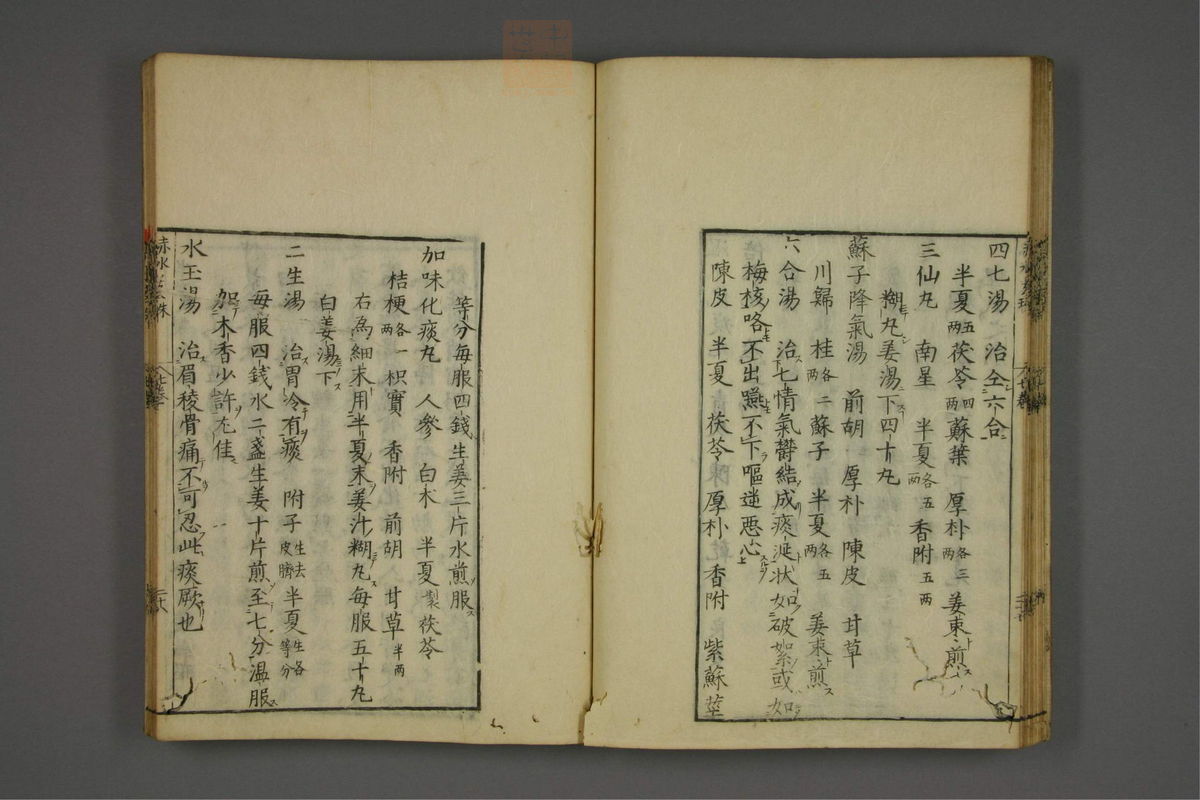 四七湯 治仝六合
半夏五两茯苓四两蘇葉 厚朴各三两 姜棗煎
三仙丸 南星 半夏各五两 香附五两
糊丸姜湯下四十丸
蘇子降氣湯 前胡 厚朴 陳皮 甘草
川歸 桂各二两 蘇子 半夏各五两 姜棗煎
六合湯 治七情氣欝結成痰涎状如破絮或如
梅核咯不出嚥不下嘔逆恶心
陳皮 半夏 茯苓 厚朴 香附 紫蘇莖
等分每服四錢生姜三片水煎服
加味化痰丸 人參 白术 半夏製茯苓
桔梗各一两 枳實 香附 前胡 甘草半两
右為細末用半夏末姜汁糊丸每服五十丸
白姜湯下
二生湯 治胃冷有痰 附子生去皮臍半夏生各等分
每服四錢水二盞生姜十片煎至七分温服
加木香少許尤佳
水玉湯 治眉稜骨痛不可忍此痰厥也
赤水玄珠 七卷 二十八